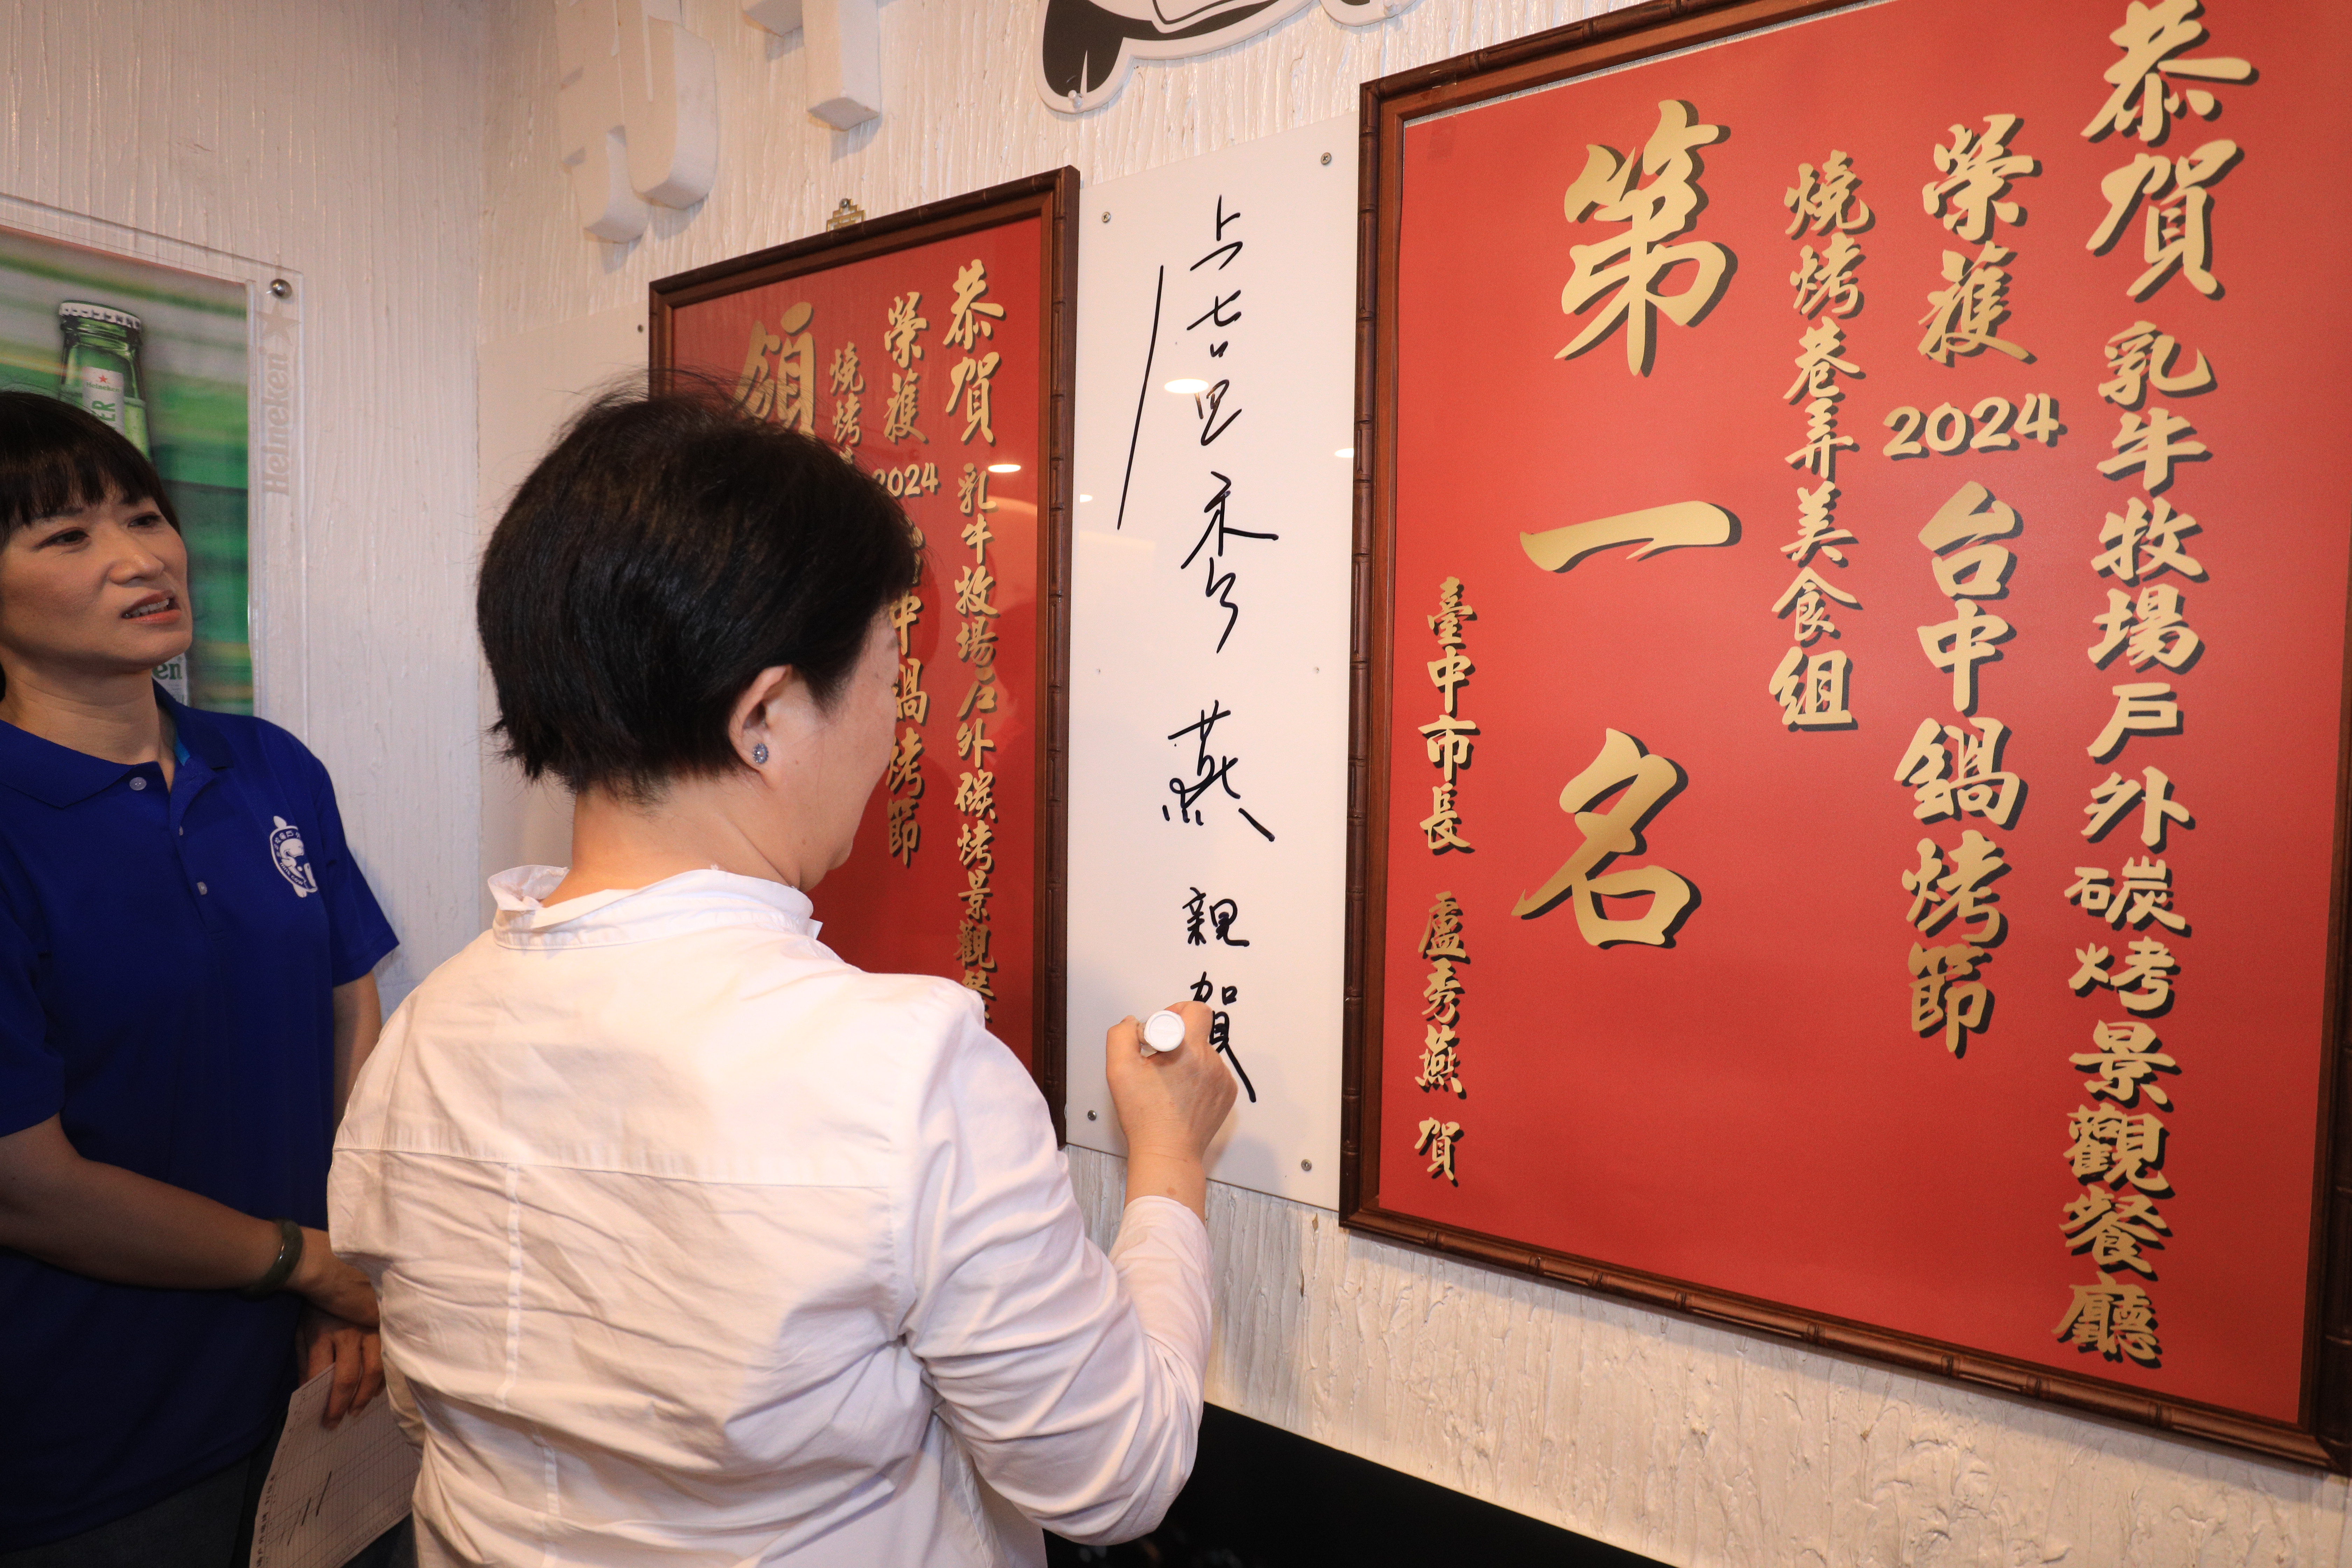 恭賀 乳牛牧場戶外碳烤景觀餐廳
榮獲 2024 台中鍋烤節
燒烤巷弄美食組
第一名
臺中市長 盧秀燕 賀
盧秀燕 親賀
恭賀 乳牛牧場戶外碳烤景觀餐
榮獲 2024 中鍋烤節
燒烤
領
Heineken